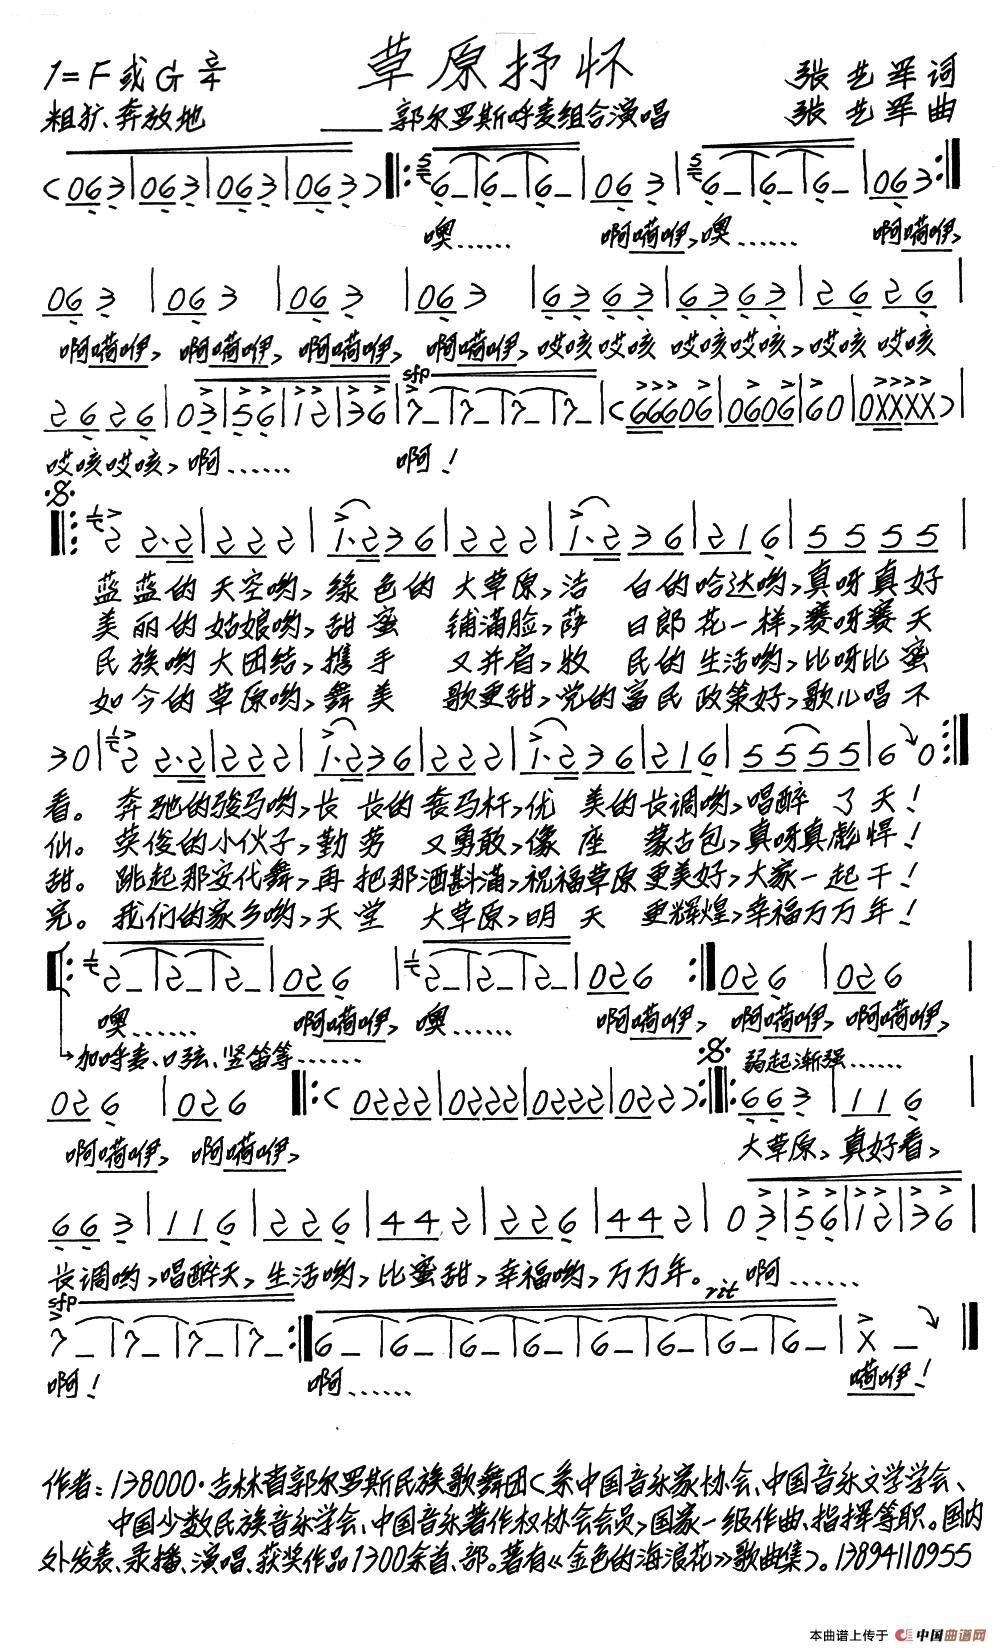 草原抒怀
1=F或G 2/4
张艺军词
粗犷、奔放地
郭尔罗斯呼麦组合演唱
张艺军曲
(063|063|063|063)‖:6_|6_|6_|063|6_|6_|6_|063:‖
噢…… 啊嗬咿,噢…… 啊嗬咿,
063|063|063|063|6363|6363|2626|
啊嗬咿, 啊嗬咿, 啊嗬咿, 啊嗬咿,哎咳哎咳 哎咳哎咳,哎咳 哎咳
sfp
2626|03|56|12|36|7_|7_|7_|7_|(66606|0606|60|0XXXX)|
哎咳哎咳,啊…… 啊!
2 2·2|222|1·236|222|1·236|216|5555|
蓝蓝的 天空哟,绿色的 大草原,洁 白的哈达哟,真呀真好
美丽的姑娘哟,甜蜜 铺满脸,萨 日郎花一样,赛呀赛天
民族哟 大团结,携手 又并肩,牧 民的生活哟,比呀比蜜
如今的草原哟,舞美 歌更甜,党的富民政策好,歌儿唱不
30|2 2·2|222|1·236|222|1·236|216|5555|6 0:‖
看。 奔驰的骏马哟,长 长的套马杆,优 美的长调哟,唱醉 了天!
仙。 英俊的小伙子,勤劳 又勇敢,像座 蒙古包,真呀真彪悍!
甜。 跳起那安代舞,再把那酒斟满,祝福草原更美好,大家一起干!
完。 我们的家乡哟,天堂 大草原,明天 更辉煌,幸福万万年!
‖:2_|2_|2_|026|2_|2_|2_|026:‖026|026|
噢…… 啊嗬咿,噢…… 啊嗬咿, 啊嗬咿, 啊嗬咿,
加呼麦、口弦、竖笛等……
弱起渐强……
026|026‖:(0222|0222|0222|022):‖:663|116|
啊嗬咿, 啊嗬咿, 大草原、真好看,
663|116|226|442|226|442|03|56|12|36|
长调哟,唱醉天,生活哟,比蜜甜,幸福哟,万万年。 啊……
sfp
rit
7_|7_|7_|7_:‖6_|6_|6_|6_|6_|6_|6_|6_|X _‖
啊! 啊…… 嗬咿!
作者:138000·吉林省郭尔罗斯民族歌舞团(系中国音乐家协会、中国音乐文学学会、
中国少数民族音乐学会、中国音乐著作权协会会员,国家一级作曲、指挥等职。国内
外发表、录播、演唱、获奖作品1300余首、部。著有《金色的海浪花》歌曲集)。13894110955
本曲谱上传于 中国曲谱网